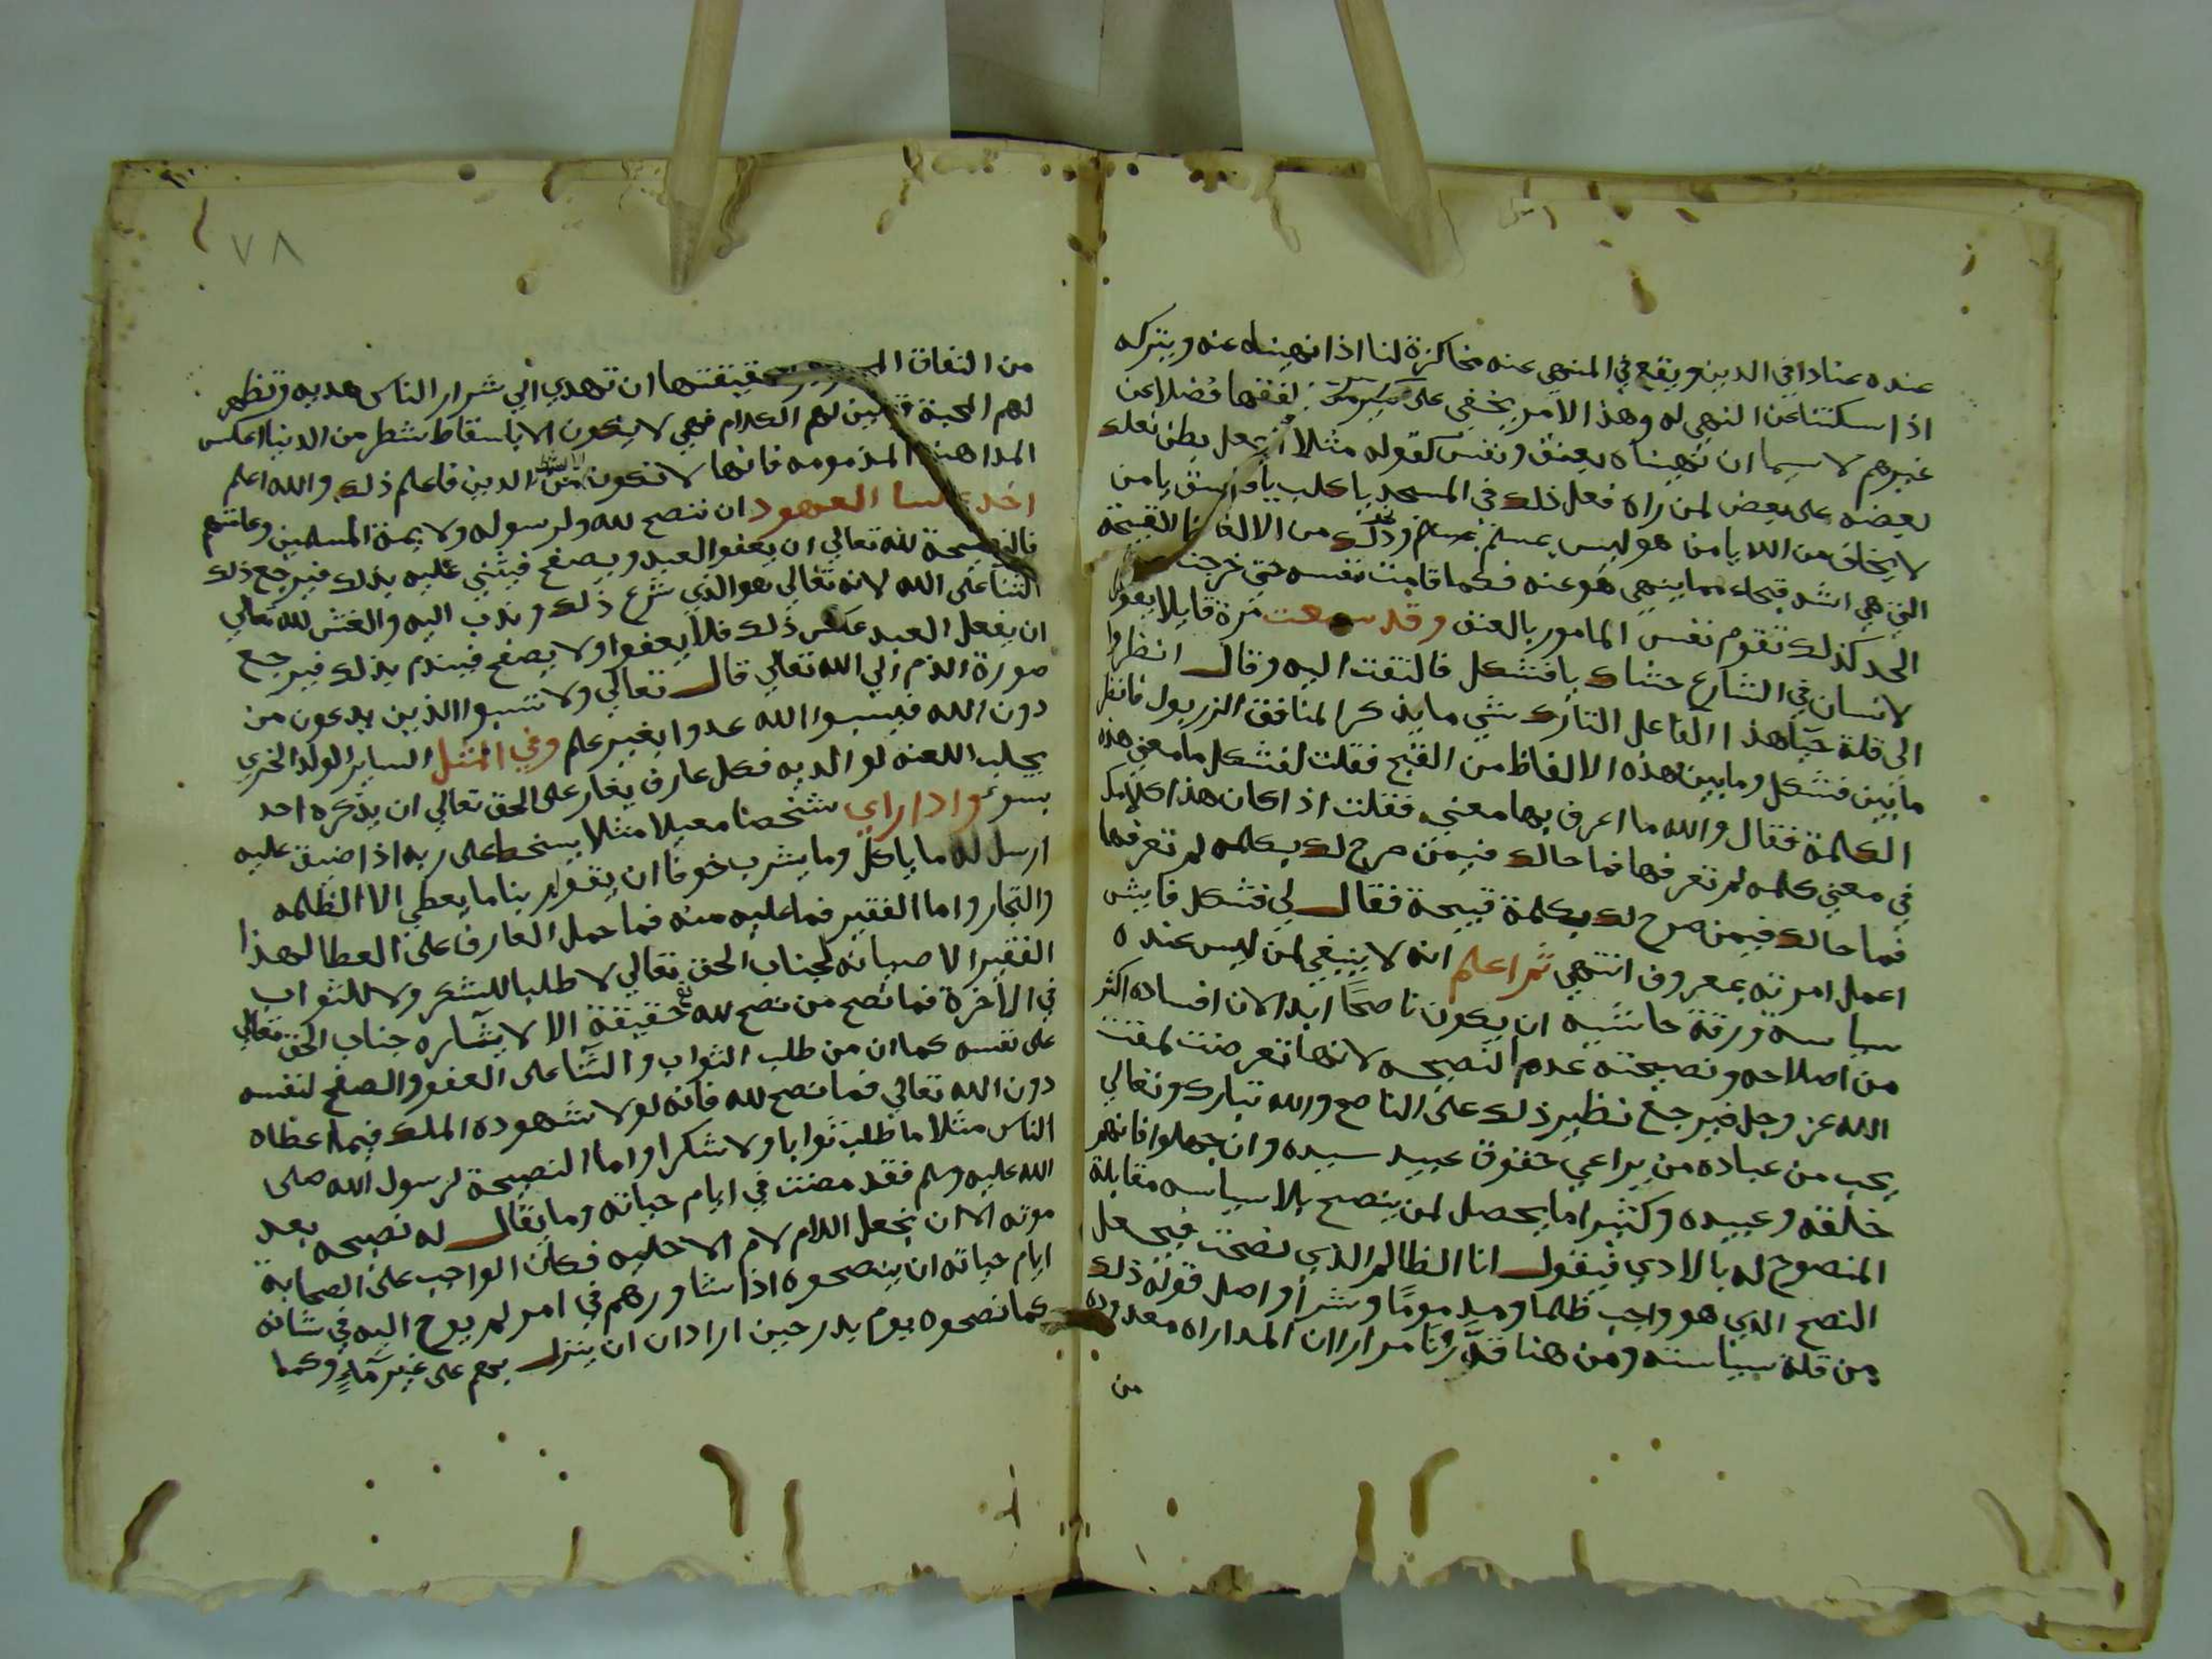 عنده عنادا في الدين ويقع في المنهي عنه مخاكرة لنا اذا نهيناه عنه ويتركه
اذا سكتنا عن النهي له وهذا الامر يخفي على كثير من الفقها فضلا عن
غيرهم لا سيما ان نهيناه بعنف ونفس كقوله مثلا لمن جعل بطن نعله
بعضه على بعض لمن راه فعل ذلك في المسجد يا كلب يا فاسق يا من
لا يخاف من الله يا من هو ليس بمسلم ونحو ذلك من الالفاظ القبيحة
التي هي اشد قبحا مما ينهي هو عنه فكما قامت نفسه حتى خرجت
الحد كذلك تقوم نفس المامور بالعنف وقد سمعت مرة قايلا يقول
لانسان في الشارع حشاك يا فشكل فالتفت اليه وقال انظروا
الى قلة حيا هذا الفاعل التارك شي ما يذكر المنافق الزربول فانظر
ما بين فشكل وما بين هذه الالفاظ من القبح فقلت لفشكل ما معني هذه
الكلمة فقال والله ما اعرف لها معني فقلت اذا كان هذا كلامك
في معني كلمه لم تعرفها فما حالك فيمن صرح لك بكلمه لم تعرفها
فما حالك فيمن صرح لك بكلمة قبيحة فقال لي فشكل فايش
اعمل امرته بمعروف انتهي ثم اعلم انه لا ينبغي لمن ليس عنده
سياسة ورقة حاشيه ان يكون ناصحا ابدا لان افساده اكثر
من اصلاحه ونصيحته عدم النصيحه لانها تعرضت لمقت
الله عز وجل فيرجع نظير ذلك على الناصح والله تبارك وتعالي
يحب من عباده من يراعي حقوق عبيد سيده وان جهلوا فانهم
خلقه وعبيده وكثيرا ما يحصل لمن ينصح بلا سياسه مقابلة
المنصوح له بالاذي فيقول انا الظالم الذي نصحت فيجعل
النصح الذي هو واجب ظلما ومذموما وشرا واصل قوله ذلك
من قلة سياسته ومن هنا قدرنا مرارا ان المداراه معدوده
من
٧٨
من النفاق وحقيقتها ان تهدي الي شرار الناس هديه وتظهر
لهم المحبة وتلين لهم الكلام فهي لا يكون الا باسقاط شطر من الدنيا عكس
المداهنة المذمومه فانها لا تكون الا باسقاط من الدين فاعلم ذلك والله اعلم
اخذ علينا العهود ان ننصح لله ولرسوله ولايمة المسلمين وعامتهم
فالنصيحة لله تعالي ان يعفو العبد ويصفح فيثني عليه بذلك فيرجع ذلك
الثنا على الله لانه تعالي هو الذي شرع ذلك وندب اليه والغش لله تعالي
ان يفعل العبد عكس ذلك فلا يعفوا ولا يصفح فيذم بذلك فيرجع
صورة الذم الي الله تعالي قال تعالي ولا تسبوا الذين يدعون من
دون الله فيسبوا الله عدوا بغير علم وفي المثل الساير الولد الخري
يجلب اللعنه لوالديه فكل عارف يغار على الحق تعالي ان يذكره احد
بسوء واذا راي شخصا معيلا مثلا يسخط على ربه اذا ضيق عليه
ارسل له ما ياكل وما يشرب خوفا ان يقول ربنا ما يعطي الا الظلمه
والتجار واما الفقير فما عليه منه فما حمل العارف على العطا لهذا
الفقير الا صيانه لجناب الحق تعالي لا طلبا للشكر ولا للثواب
في الآخرة فما نصح من نصح لله تع حقيقة الا لايثاره جناب الحق تعالي
على نفسه كما ان من طلب الثواب والثنا على العفو والصفح لنفسه
دون الله تعالي فما نصح لله فانه لولا شهوده الملك فيما اعطاه
الناس مثلا ما طلب ثوابا ولا شكرا واما النصيحة لرسول الله صلى
الله عليه وسلم فقد مضت في ايام حياته وما يقال له نصيحه بعد
موته الا ان نجعل اللام لام الاجليه فكان الواجب على الصحابة
ايام حياته ان ينصحوه اذا شاورهم في امر لم يوح اليه في شانه
كما نصحوه يوم بدر حين اراد ان ينزل بهم على غير ماء وكما